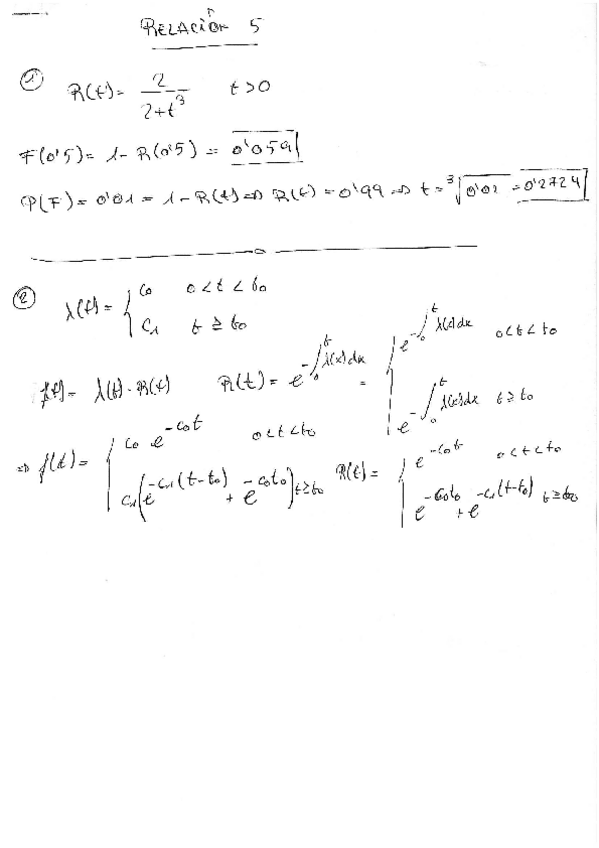 RELACIÓN 5
① R(t) = 2/(2+t³) t>0
F(0'5) = 1 - R(0'5) = 0'059
P(F) = 0'01 = 1 - R(t) ⇒ R(t) = 0'99 ⇒ t = ³√0'02 = 0'2724
② λ(t) = { c₀ 0<t<t₀
c₁ t ≥ t₀
f(t) = λ(t)·R(t) R(t) = e^(-∫₀ᵗ λ(x)dx) = { e^(-∫₀ᵗ λ(x)dx) 0<t<t₀
e^(-∫₀ᵗ λ(x)dx) t ≥ t₀
⇒ f(t) = { c₀ e^(-c₀t) 0<t<t₀ R(t) = { e^(-c₀t) 0<t<t₀
c₁(e^(-c₁(t-t₀)) + e^(-c₀t₀)) t≥t₀ e^(-c₀t₀) + e^(-c₁(t-t₀)) t≥t₀